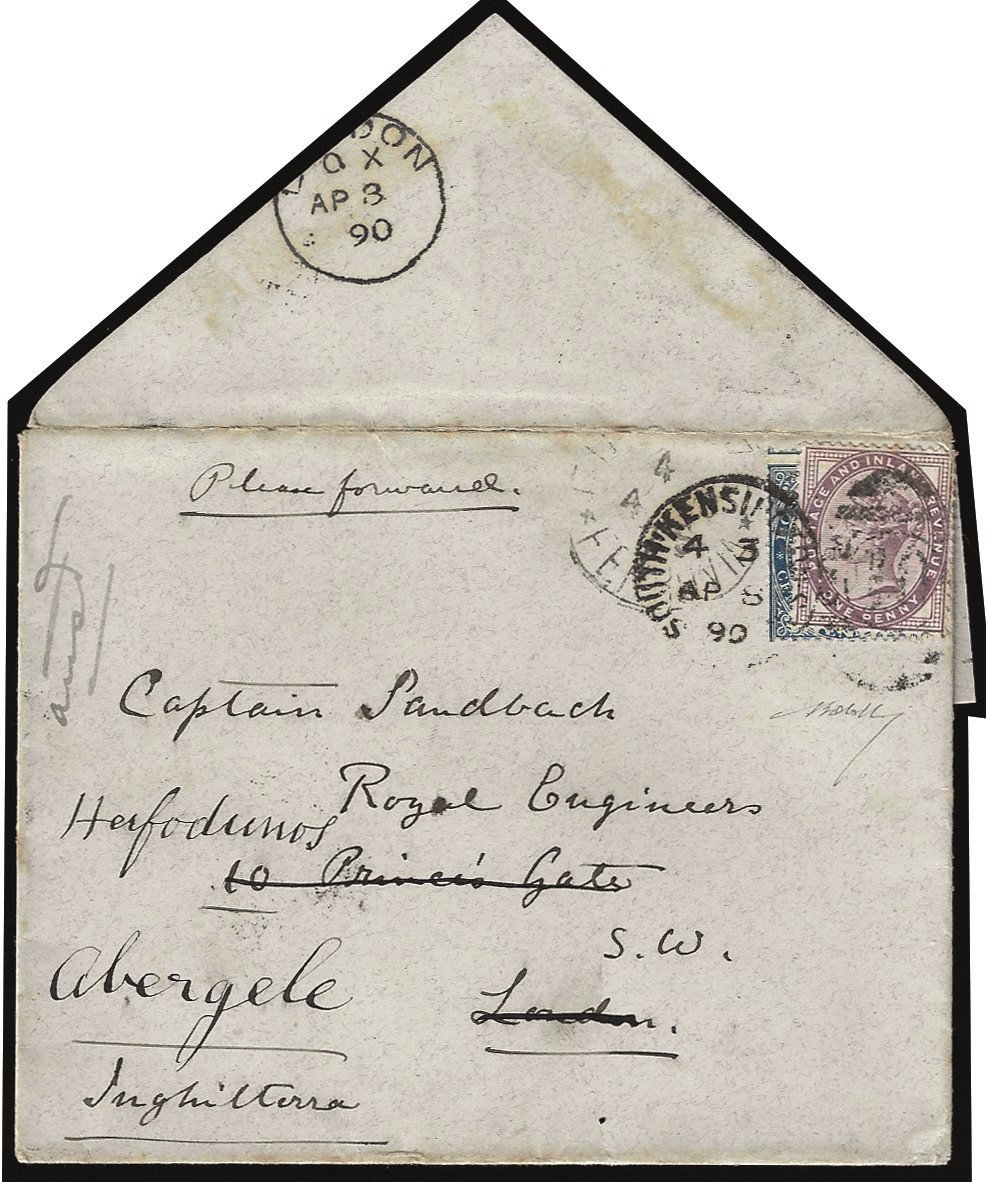 DON
Q X
AP 8
90
Please forwand.
4
4
FE
SOUTH KENSI
4 3
AP 8
90
CE
AND INLA REVENUE
ONE PENNY
Captain Sandbach
Royal Engineers
Hafodunos
10 Prince's Gate
S.W.
Abergele
London.
Inghilterra